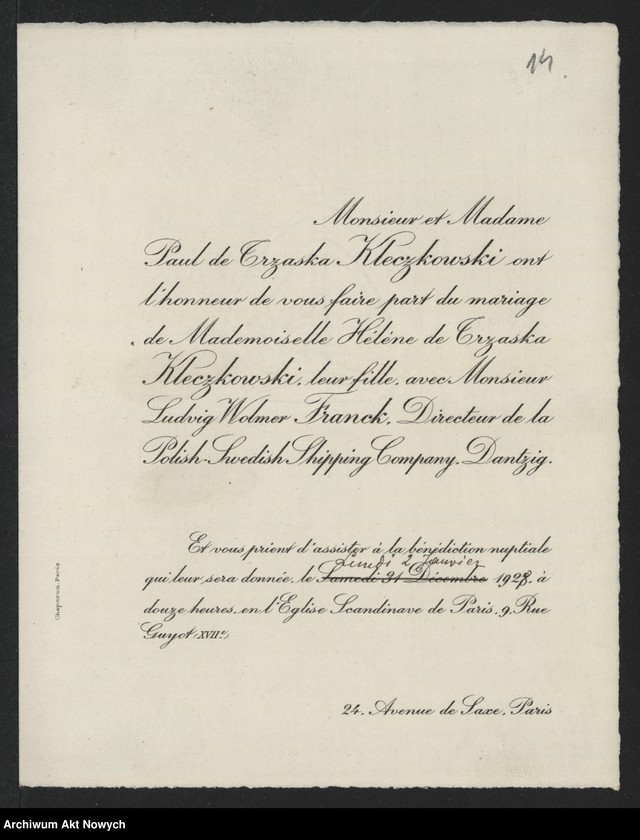 14.
Monsieur et Madame
Paul de Trzaska Kleczkowski ont
l'honneur de vous faire part du mariage
de Mademoiselle Hélène de Trzaska
Kleczkowski, leur fille, avec Monsieur
Ludvig Wolmer Franck, Directeur de la
Polish-Swedish Shipping Company, Dantzig.
Et vous prient d'assister à la bénédiction nuptiale
Lundi 2 Janvier
qui leur sera donnée, le Samedi 31 Décembre 1928, à
douze heures, en l'Eglise Scandinave de Paris, 9, Rue
Guyot (XVIIe)
24, Avenue de Saxe, Paris
Chaperon, Paris
Archiwum Akt Nowych